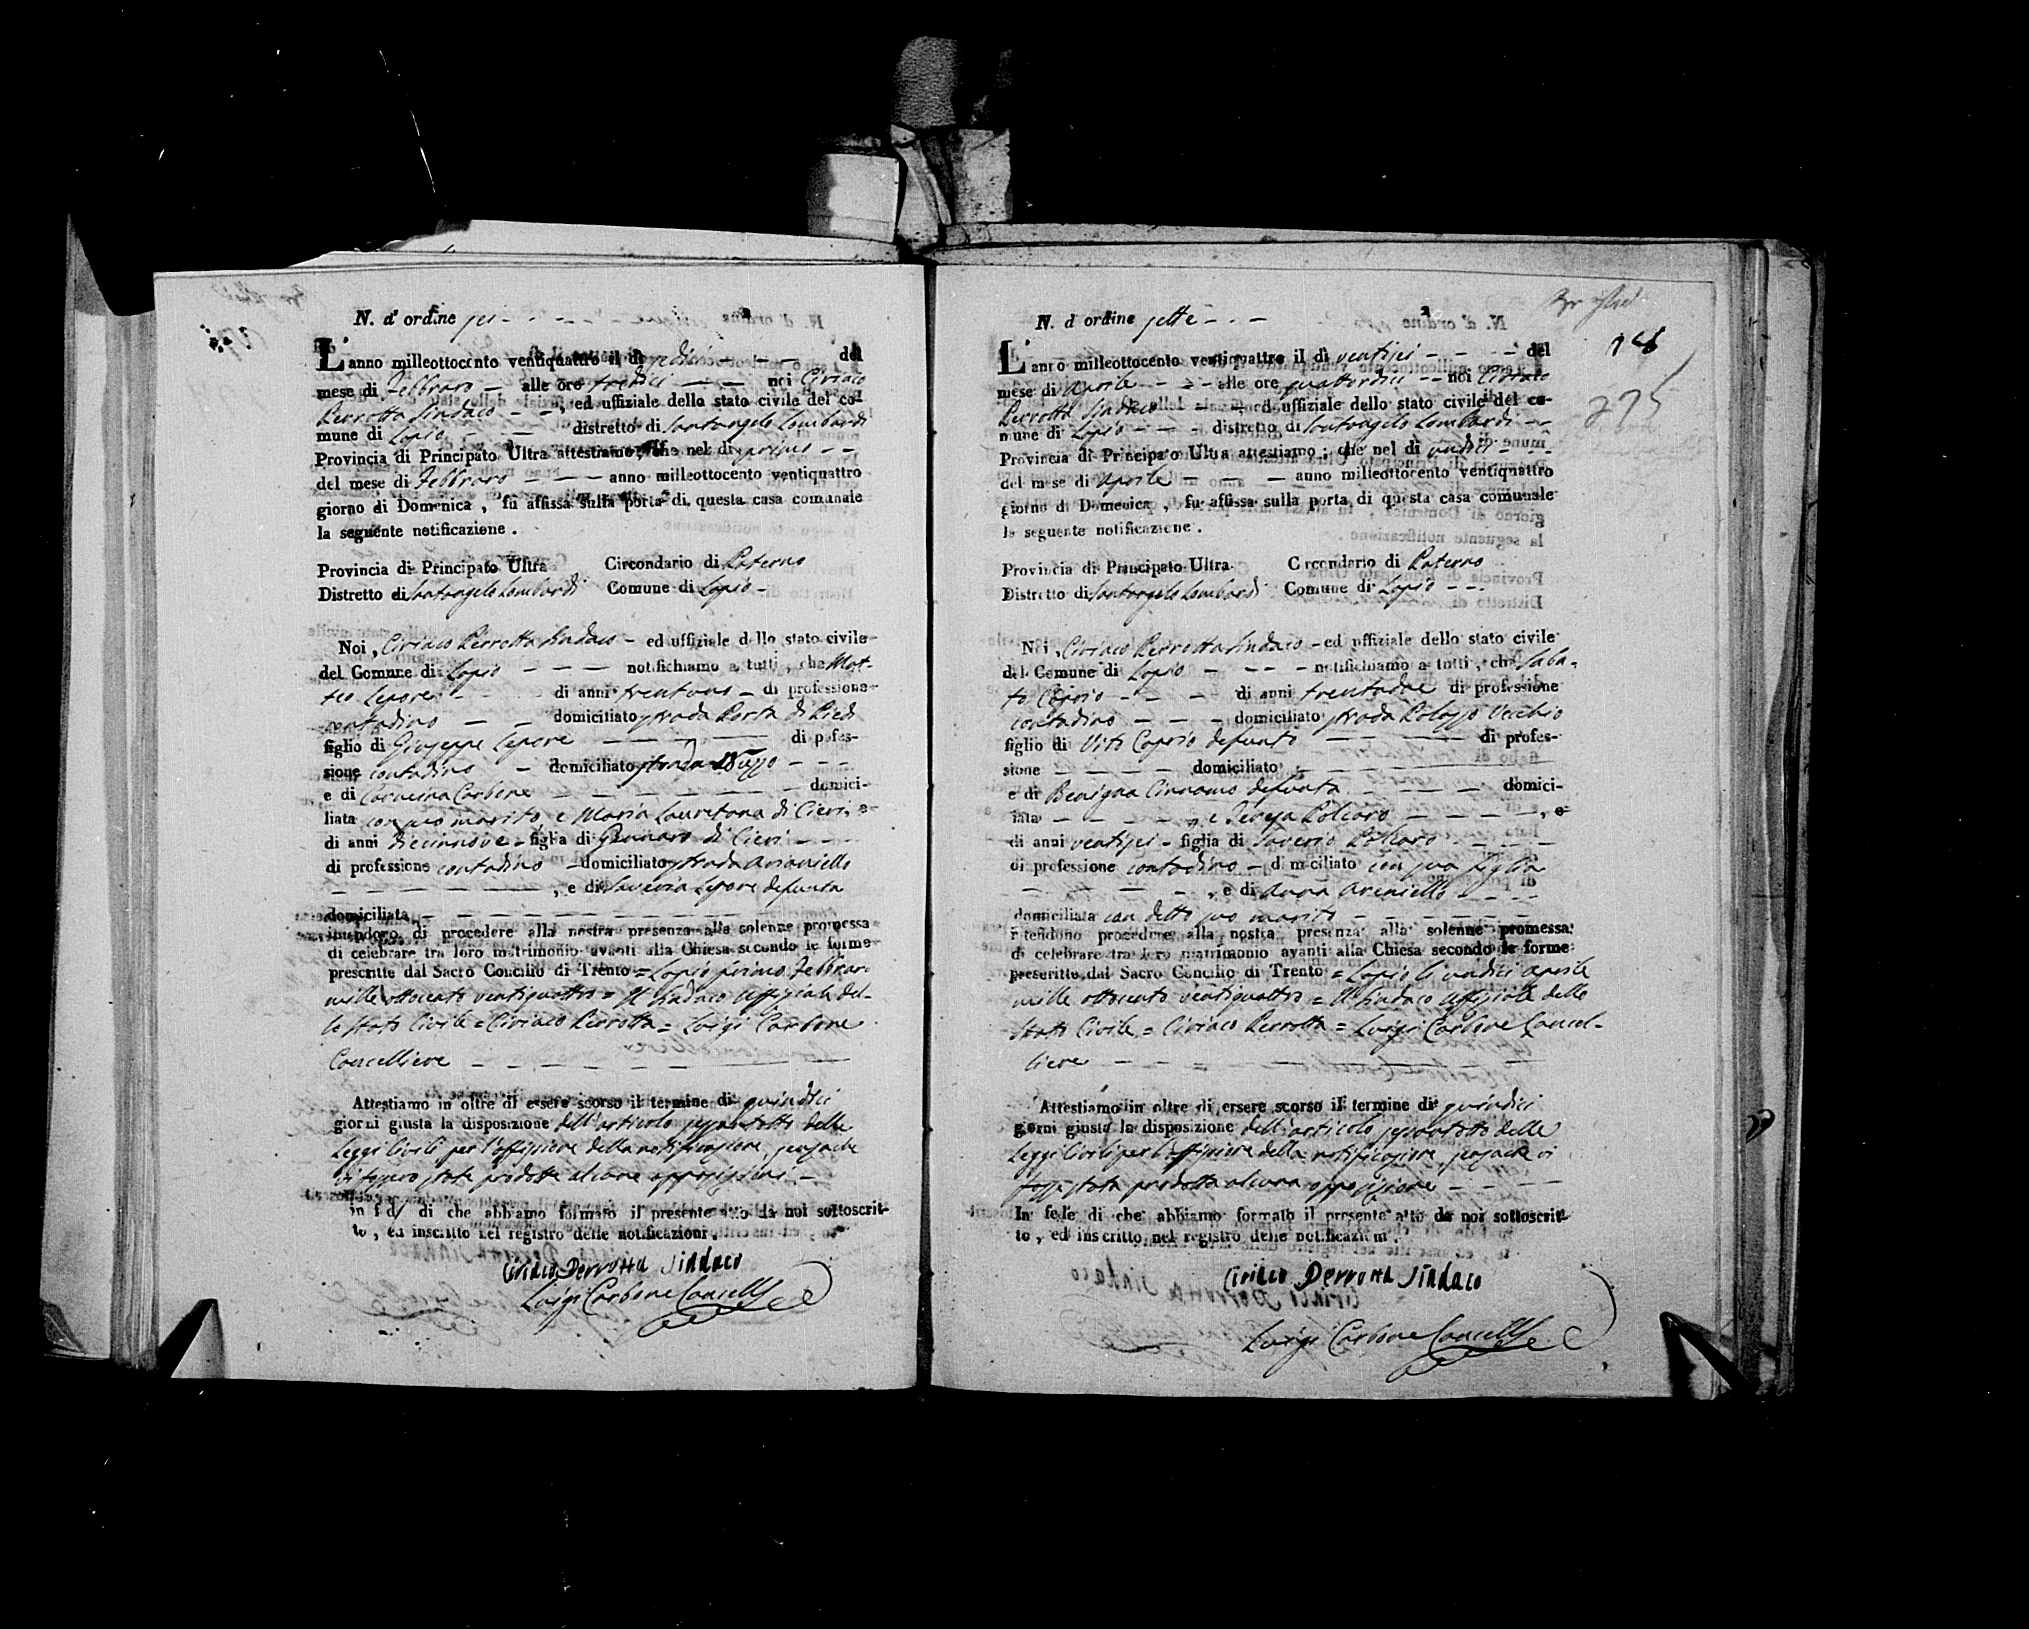 N. d' ordine sei
L' anno milleottocento ventiquattro il dì sedici del
mese di Febbraro alle ore tredici noi Ciriaco
Perrotta Sindaco , ed uffiziale dello stato civile del co-
mune di Lapio distretto di Santangelo Lombardi
Provincia di Principato Ultra attestiamo, che nel dì primo
del mese di Febbraro anno milleottocento ventiquattro
giorno di Domenica , fu affissa sulla porta di questa casa comunale
la seguente notificazione .
Provincia di Principato Ultra Circondario di Paterno
Distretto di Santangelo Lombardi Comune di Lapio
Noi , Ciriaco Perrotta Sindaco ed uffiziale dello stato civile
del Comune di Lapio notifichiamo a tutti , che Mat-
teo Lepore di anni trentuno di professione
contadino domiciliato strada Porta di Piedi
figlio di Giuseppe Lepore di pofes-
sione contadino domiciliato strada
e di Carbone domici-
liata con suo marito, e Maria Lauretana di Cieri, e
di anni diecinnove figlia di Gennaro di Cieri
di professione contadino domiciliato strada Arianiello
, e di Saveria Lepore defunta
domiciliata
intendono di procedere alla nostra presenza alla solenne promessa
di celebrare tra loro matrimonio avanti alla Chiesa secondo le forme
prescritte dal Sacro Concilio di Trento = Lapio primo Febbraro
mille ottocento ventiquattro = Il Sindaco Uffiziale del-
lo Stato Civile = Ciriaco Perrotta = Luigi Carbone
Cancelliere
Attestiamo in oltre di essere scorso il termine di quindici
giorni giusta la disposizione dell'articolo sessantotto delle
Leggi Civili per l'affissione della notificazione, senzache
vi fossero state prodotte alcune opposizioni
in fede di che abbiamo formato il presente atto da noi sottoscrit-
to , ed inscritto nel registro delle notificazioni .
Ciriaco Perrotta Sindaco
Luigi Carbone Cancell.
N. d' ordine sette
148
275
L' anno milleottocento ventiquattro il dì ventisei del
mese di Aprile alle ore quattordici noi Ciriaco
Perrotta Sindaco ed uffiziale dello stato civile del co-
mune di Lapio distretto di Santangelo Lombardi
Provincia di Principato Ultra attestiamo ; che nel dì undici
del mese di Aprile anno milleottocento ventiquattro
giorno di Domenica , fu affissa sulla porta di questa casa comunale
la seguente notificazione .
Provincia di Principato Ultra Circondario di Paterno
Distretto di Santangelo Lombardi Comune di Lapio
Noi , Ciriaco Perrotta Sindaco ed uffiziale dello stato civile
del Comune di Lapio notifichiamo a tutti , che Saba-
to Caprio di anni trentadue di professione
contadino domiciliato strada Palazzo Vecchio
figlio di Vito Caprio defunto di profes-
sione domiciliato
e di Benigna Cinnamo defunta domici-
liata , e Teresa Polcaro , e
di anni ventisei figlia di Saverio Polcaro
di professione contadino domiciliato con sua figlia
, e di Anna Areniello
domiciliata con detto suo marito
intendono procedere alla nostra presenza alla solenne promessa
di celebrare tra loro matrimonio avanti alla Chiesa secondo le forme
prescritte dal Sacro Concilio di Trento = Lapio li undici Aprile
mille ottocento ventiquattro = Il Sindaco Uffiziale dello
Stato Civile = Ciriaco Perrotta = Luigi Carbone Cancel-
liere
Attestiamo in oltre di essere scorso il termine di quindici
giorni giusta la disposizione dell'articolo sessantotto delle
Leggi Civili per l'affissione della notificazione, senzache vi
fosse stata prodotta alcuna opposizione
In fede di che abbiamo formato il presente atto da noi sottoscrit-
to , ed inscritto nel registro delle notificazioni .
Ciriaco Perrotta Sindaco
Luigi Carbone Cancell.